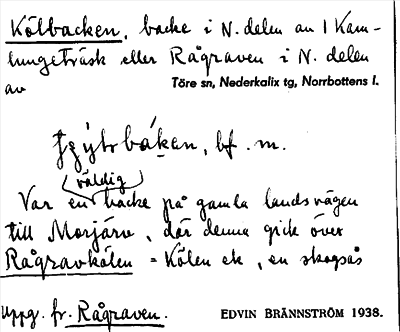 Kölbacken, backe i N. delen av 1 Kam-
lungeträsk eller Rågraven i N. delen
av Töre sn, Nederkalix tg, Norrbottens l.
bf. m.
(väldig)
Var en backe på gamla landsvägen
till Morjärv, där denna gick över
Rågravkölen = Kölen ek, en skogsås
Uppg. fr. Rågraven. EDVIN BRÄNNSTRÖM 1938.